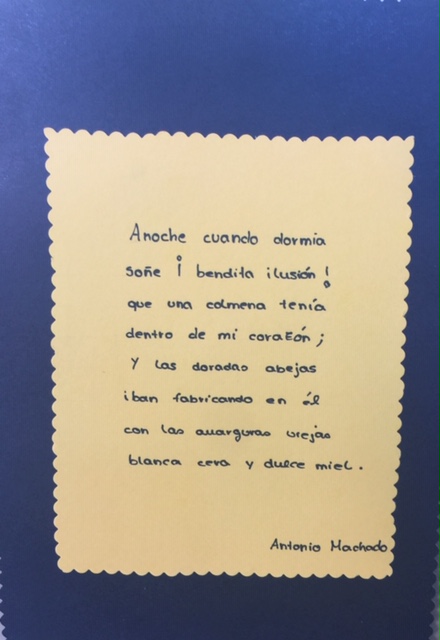 Anoche cuando dormia
soñe ¡ bendita ilusión !
que una colmena tenía
dentro de mi corazón ;
Y las doradas abejas
iban fabricando en él
con las amarguras viejas
blanca cera y dulce miel.
Antonio Machado